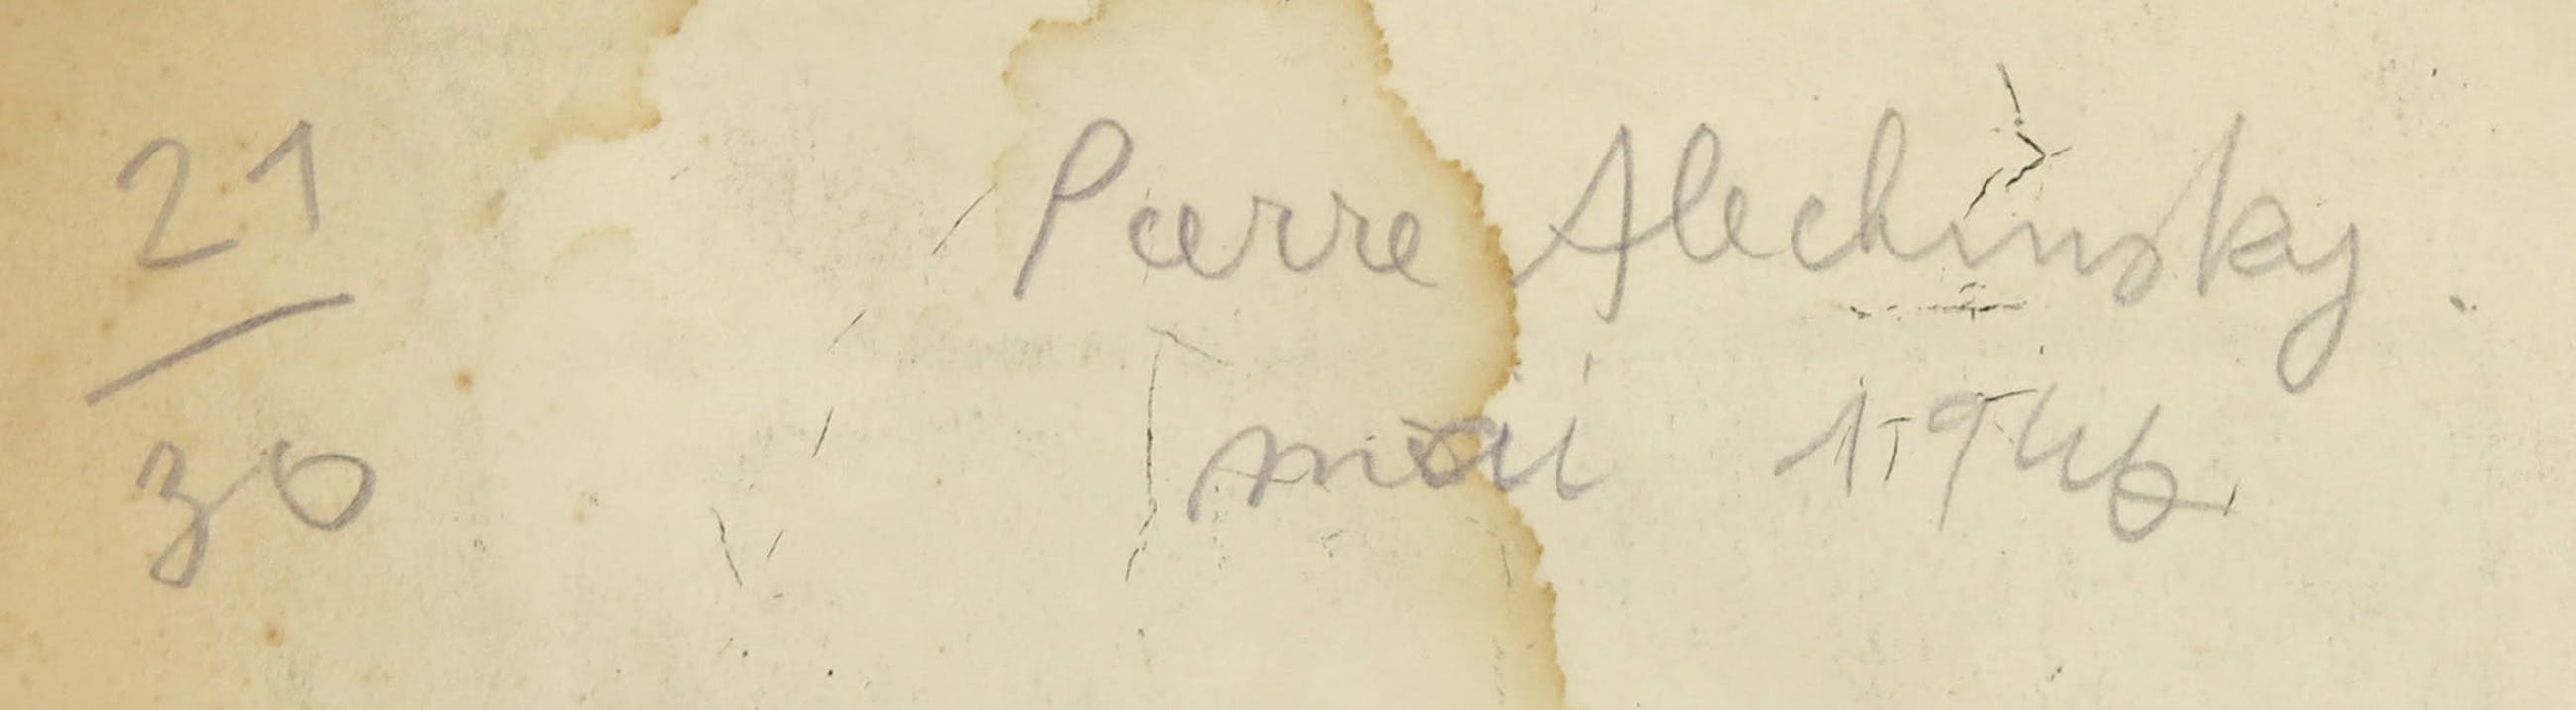 21/30
Pierre Alechinsky.
mai 1946